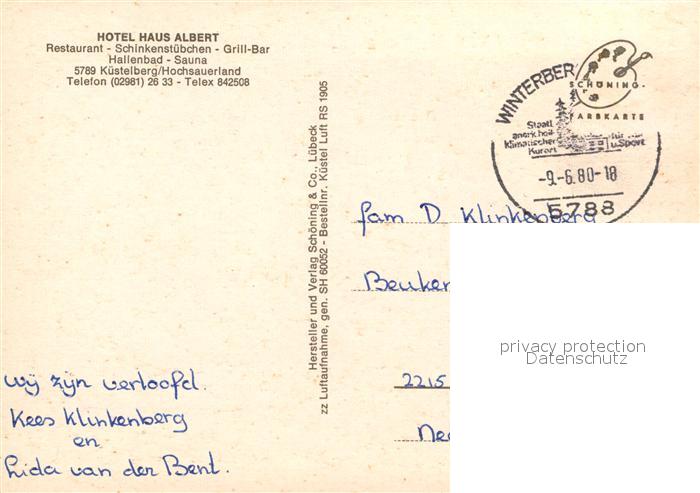 HOTEL HAUS ALBERT
Restaurant - Schinkenstübchen - Grill-Bar
Hallenbad - Sauna
5789 Küstelberg/Hochsauerland
Telefon (02981) 26 33 - Telex 842508
Hersteller und Verlag Schöning & Co., Lübeck
zz Luftaufnahme, gen. SH 60052 - Bestellnr. Küstel Luft RS 1905
SCHÖNING-
FARBKARTE
WINTERBER
Staatl
anerk heil
klimatischer
Kurort
u. Sport
-9.-6.80-18
5788
fam D Klinkenberg
Beuken
2215
Ne
wij zijn verloofd.
Kees Klinkenberg
en
Lida van der Bent.
privacy protection
Datenschutz